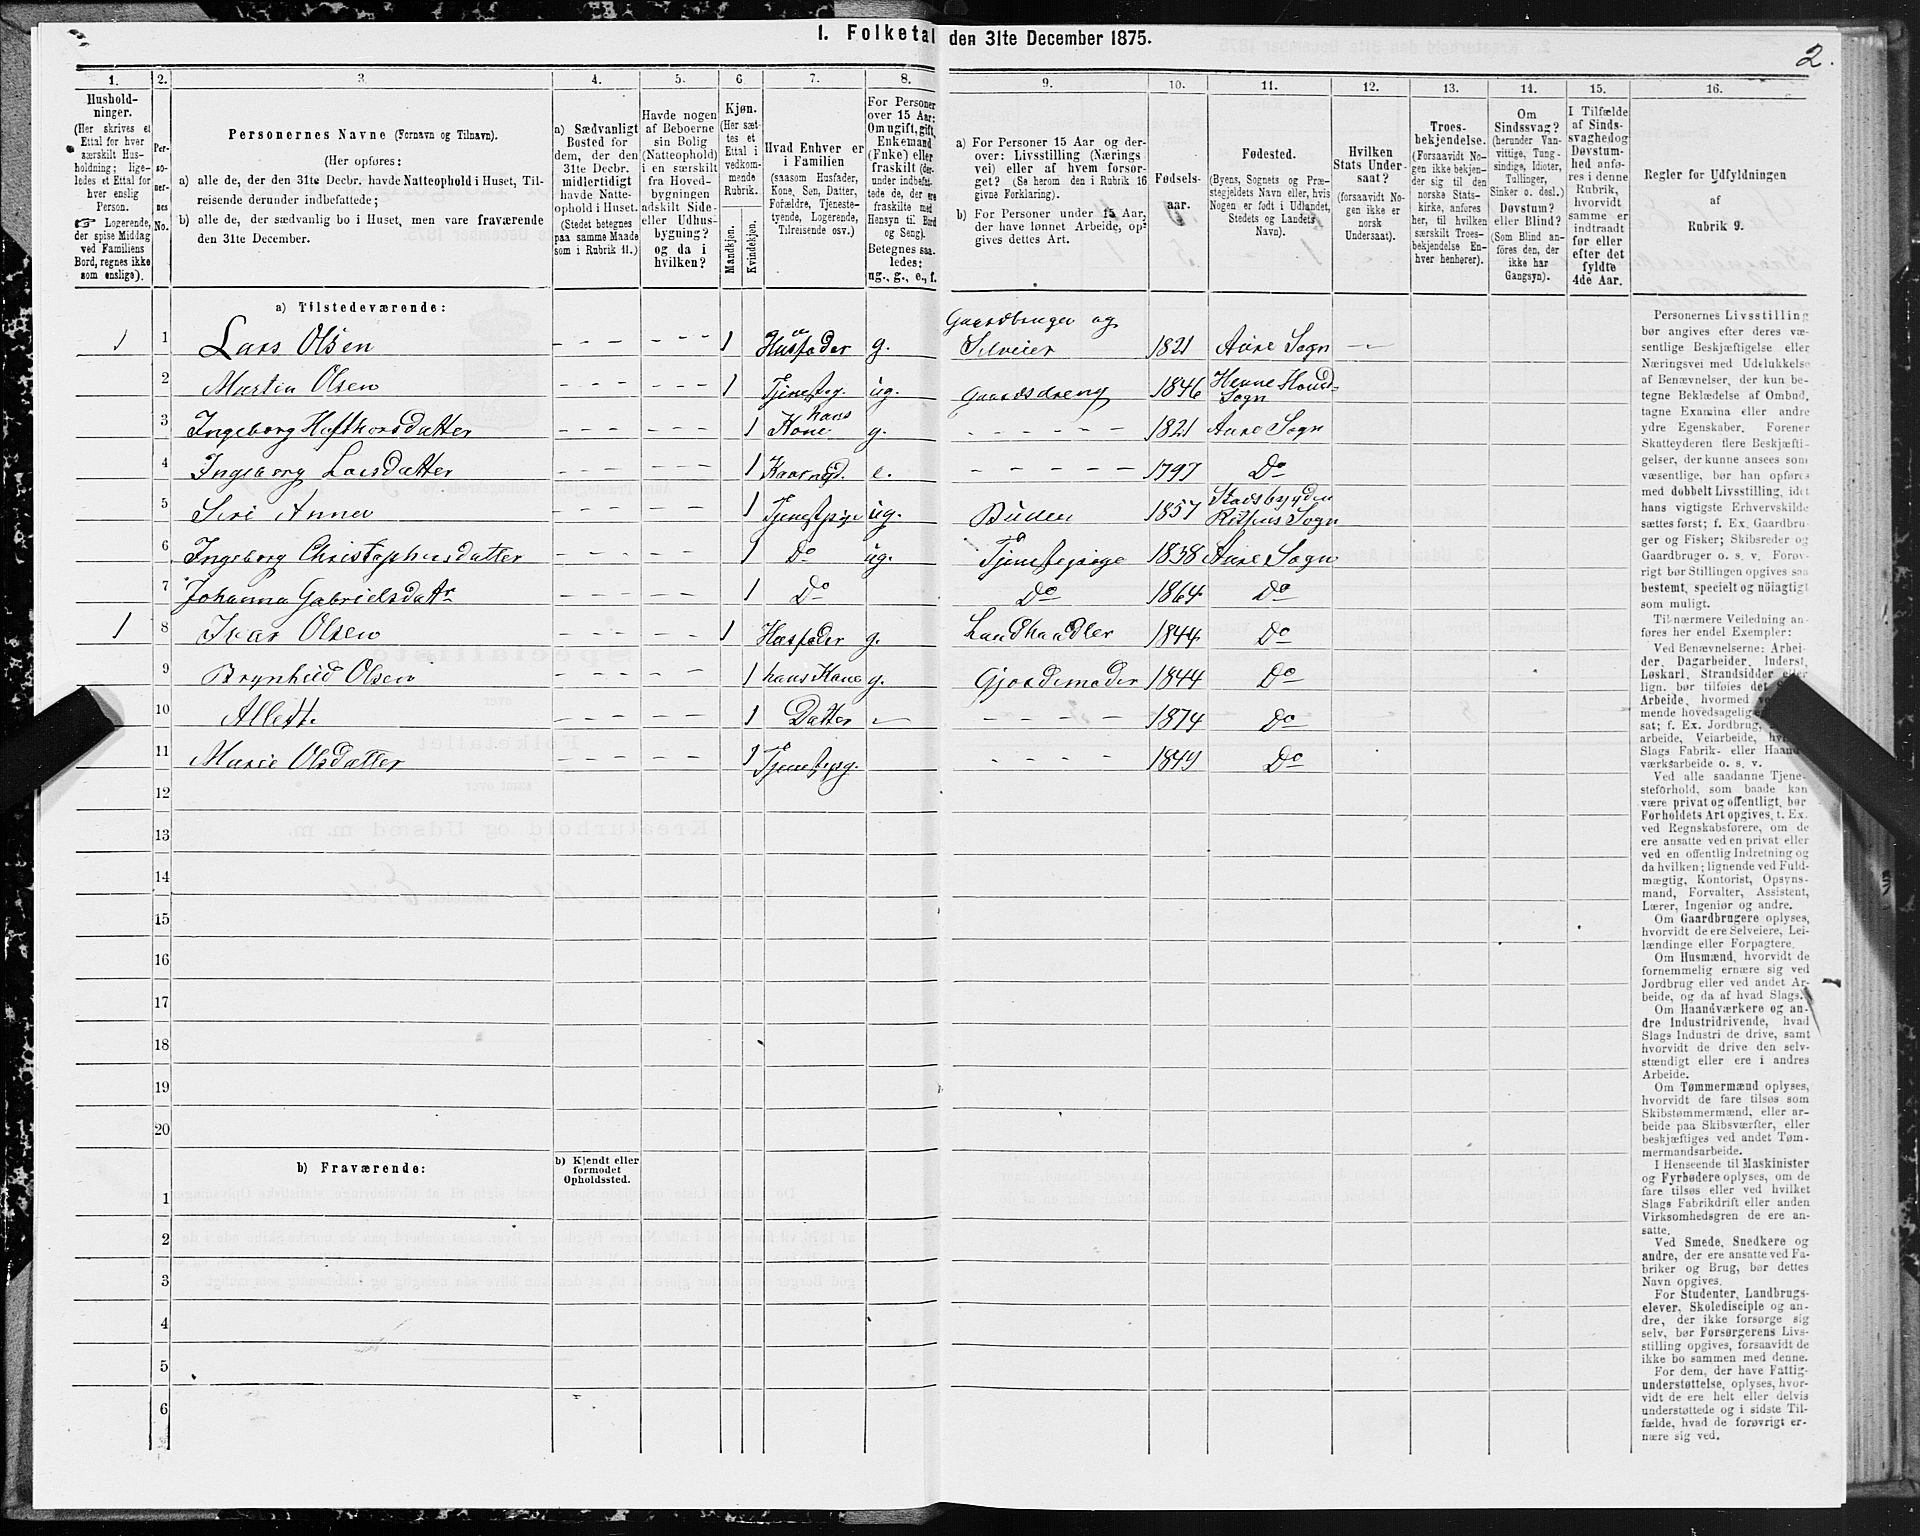 I. Folketal den 31te December 1875.
2.
1. 2. 3. 4. 5. 6 7. 8. 9. 10. 11. 12. 13. 14. 15. 16.
Hushold-
ninger.
(Her skrives et
Ettal for hver
særskilt Hus-
holdning; lige-
ledes et Ettal for
hver enslig
Person.
☞ Logerende,
der spise Middag
ved Familiens
Bord, regnes ikke
som enslige).
Per-
so-
ner-
nes
No.
Personernes Navne (Fornavn og Tilnavn).
(Her opføres:
a) alle de, der den 31te Decbr. havde Natteophold i Huset, Til-
reisende derunder indbefattede;
b) alle de, der sædvanlig bo i Huset, men vare fraværende
den 31te December.
a) Sædvanligt
Bosted for
dem, der den
31te Decbr.
midlertidigt
havde Natte-
ophold i Huset.
(Stedet betegnes
paa samme Maade
som i Rubrik 11.)
Havde nogen
af Beboerne
sin Bolig
(Natteophold)
i en særskilt
fra Hoved-
bygningen
adskilt Side-
eller Udhus-
bygning?
og da i
hvilken?
Kjøn.
(Her sæt-
tes et
Ettal i
vedkom-
mende
Rubrik.
Mandkjøn.
Kvindekjøn.
Hvad Enhver er
i Familien
(saasom Husfader,
Kone, Søn, Datter,
Forældre, Tjeneste-
tyende, Logerende,
Tilreisende osv.)
For Personer
over 15 Aar:
Om ugift, gift,
Enkemand
(Enke) eller
fraskilt (der-
under indbefat-
tede de, der ere
fraskilte med
Hensyn til Bord
og Seng).
Betegnes saa-
ledes:
ug., g., e., f.
a) For Personer 15 Aar og der-
over: Livsstilling (Nærings
vei) eller af hvem forsor-
get? (Se herom den i Rubrik 16
givne Forklaring).
b) For Personer under 15 Aar,
der have lønnet Arbeide, op-
gives dettes Art.
Fødsels-
aar.
Fødested.
(Byens, Sognets og Præ-
stegjeldets Navn eller, hvis
Nogen er født i Udlandet,
Stedets og Landets
Navn).
Hvilken
Stats Under-
saat?
(forsaavidt No-
gen ikke er
norsk
Undersaat).
Troes-
bekjendelse.
(Forsaavidt No-
gen ikke bekjen-
der sig til den
norske Stats-
kirke, anføres
her, til hvilken
særskilt Troes-
bekjendelse En-
hver henhører).
Om
Sindssvag?
(herunder Van-
vittige, Tung-
sindige, Idioter,
Tullinger,
Sinker o. desl.)
Døvstum?
eller Blind?
(Som Blind an-
føres den, der
ikke har
Gangsyn).
I Tilfælde
af Sinds-
svaghed og
Døvstum-
hed anfø-
res i denne
Rubrik,
hvorvidt
samme er
indtraadt
før eller
efter det
fyldte
4de Aar.
Regler for Udfyldningen
af
Rubrik 9.
a) Tilstedeværende:
1 1 Lars Olsen 1 Husfader g. Gaardbruger og Selveier 1821 Aure Sogn
2 Martin Olsen 1 Tjenestyg. ug. Gaardsdreng 1846 Henne Sogn
3 Ingeborg Hafthorsdatter 1 hans Kone g. 1821 Aure Sogn
4 Ingeborg Larsdatter 1 e. 1797 Do
5 Siri Anna 1 Tjenestpige ug. Büden 1857 Stadsbygden Sogn
6 Ingeborg Christophersdatter 1 Do ug. Tjenestepige 1838 Aure Sogn
7 Johanna Gabrielsdatr 1 Do Do 1864 Do
1 8 Ivar Olsen 1 Husfader g. Landhandler 1844 Do
9 Brynhild Olsen 1 hans Kone g. Gjordemoder 1844 Do
10 1 Datter 1874 Do
11 Marie Olsdatter 1 Tjenestepg. 1849 Do
12
13
14
15
16
17
18
19
20
b) Fraværende:
b) Kjendt eller
formodet
Opholdssted.
1
2
3
4
5
6
Personernes Livsstilling
bør angives efter deres væ-
sentlige Beskjæftigelse eller
Næringsvei med Udelukkelse
af Benævnelser, der kun be-
tegne Beklædelse af Ombud,
tagne Examina eller andre
ydre Egenskaber. Forener
Skatteyderen flere Beskjæfti-
gelser, der kunne ansees som
væsentlige, bør han opføres
med dobbelt Livsstilling, idet
hans vigtigste Erhvervskilde
sættes først; f. Ex. Gaardbru-
ger og Fisker; Skibsreder og
Gaardbruger o. s. v. Forøv-
rigt bør Stillingen opgives saa
bestemt, specielt og nöiagtigt
som muligt.
Til nærmere Veiledning an-
føres her endel Exempler:
Ved Benævnelserne: Arbei-
der, Dagarbeider, Inderst,
Løskarl, Strandsidder eller
lign. bør tilføies det
Arbeide, hvormed
mende hovedsagelig
sat; f. Ex. Jordbrug,
arbeide, Veiarbeide,
Slags Fabrik- eller Haand-
værksarbeide o. s. v.
Ved alle saadanne Tjene-
steförhold, som baade kan
være privat og offentligt, bør
Forholdets Art opgives, t. Ex.
ved Regnskabsførere, om de
ere ansatte ved en privat eller
ved en offentlig Indretning og
da hvilken; lignende ved Fuld-
mægtig, Kontorist, Opsyns-
mand, Forvalter, Assistent,
Lærer, Ingeniør og andre.
Om Gaardbrugere oplyses,
hvorvidt de ere Selveiere, Lei-
lændinge eller Forpagtere.
Om Husmænd, hvorvidt de
fornemmelig ernære sig ved
Jordbrug eller ved andet Ar-
beide, og da af hvad Slags.
Om Haandværkere og an-
dre Industridrivende, hvad
Slags Industri de drive, samt
hvorvidt de drive den selv-
stændigt eller ere i andres
Arbeide.
Om Tømmermænd oplyses,
hvorvidt de fare tilsøs som
Skibstømmermænd, eller ar-
beide paa Skibsværfter, eller
beskjæftiges ved andet Tøm-
mermandsarbeide.
I Henseende til Maskinister
og Fyrbødere oplyses, om de
fare tilsøs eller ved hvilket
Slags Fabrikdrift eller anden
Virksomhedsgren de ere an-
satte.
Ved Smede, Snedkere og
andre, der ere ansatte ved Fa-
briker og Brug, bør dettes
Navn opgives.
For Studenter, Landbrugs-
elever, Skoledisciple og an-
dre, der ikke forsørge sig
selv, bør Forsørgerens Livs-
stilling opgives, forsaavidt de
ikke bo sammen med denne.
For dem, der have Fattig-
understøttelse, oplyses, hvor-
vidt de ere helt eller delvis
understøttede og i sidste Til-
fælde, hvad de forøvrigt er-
nære sig ved.